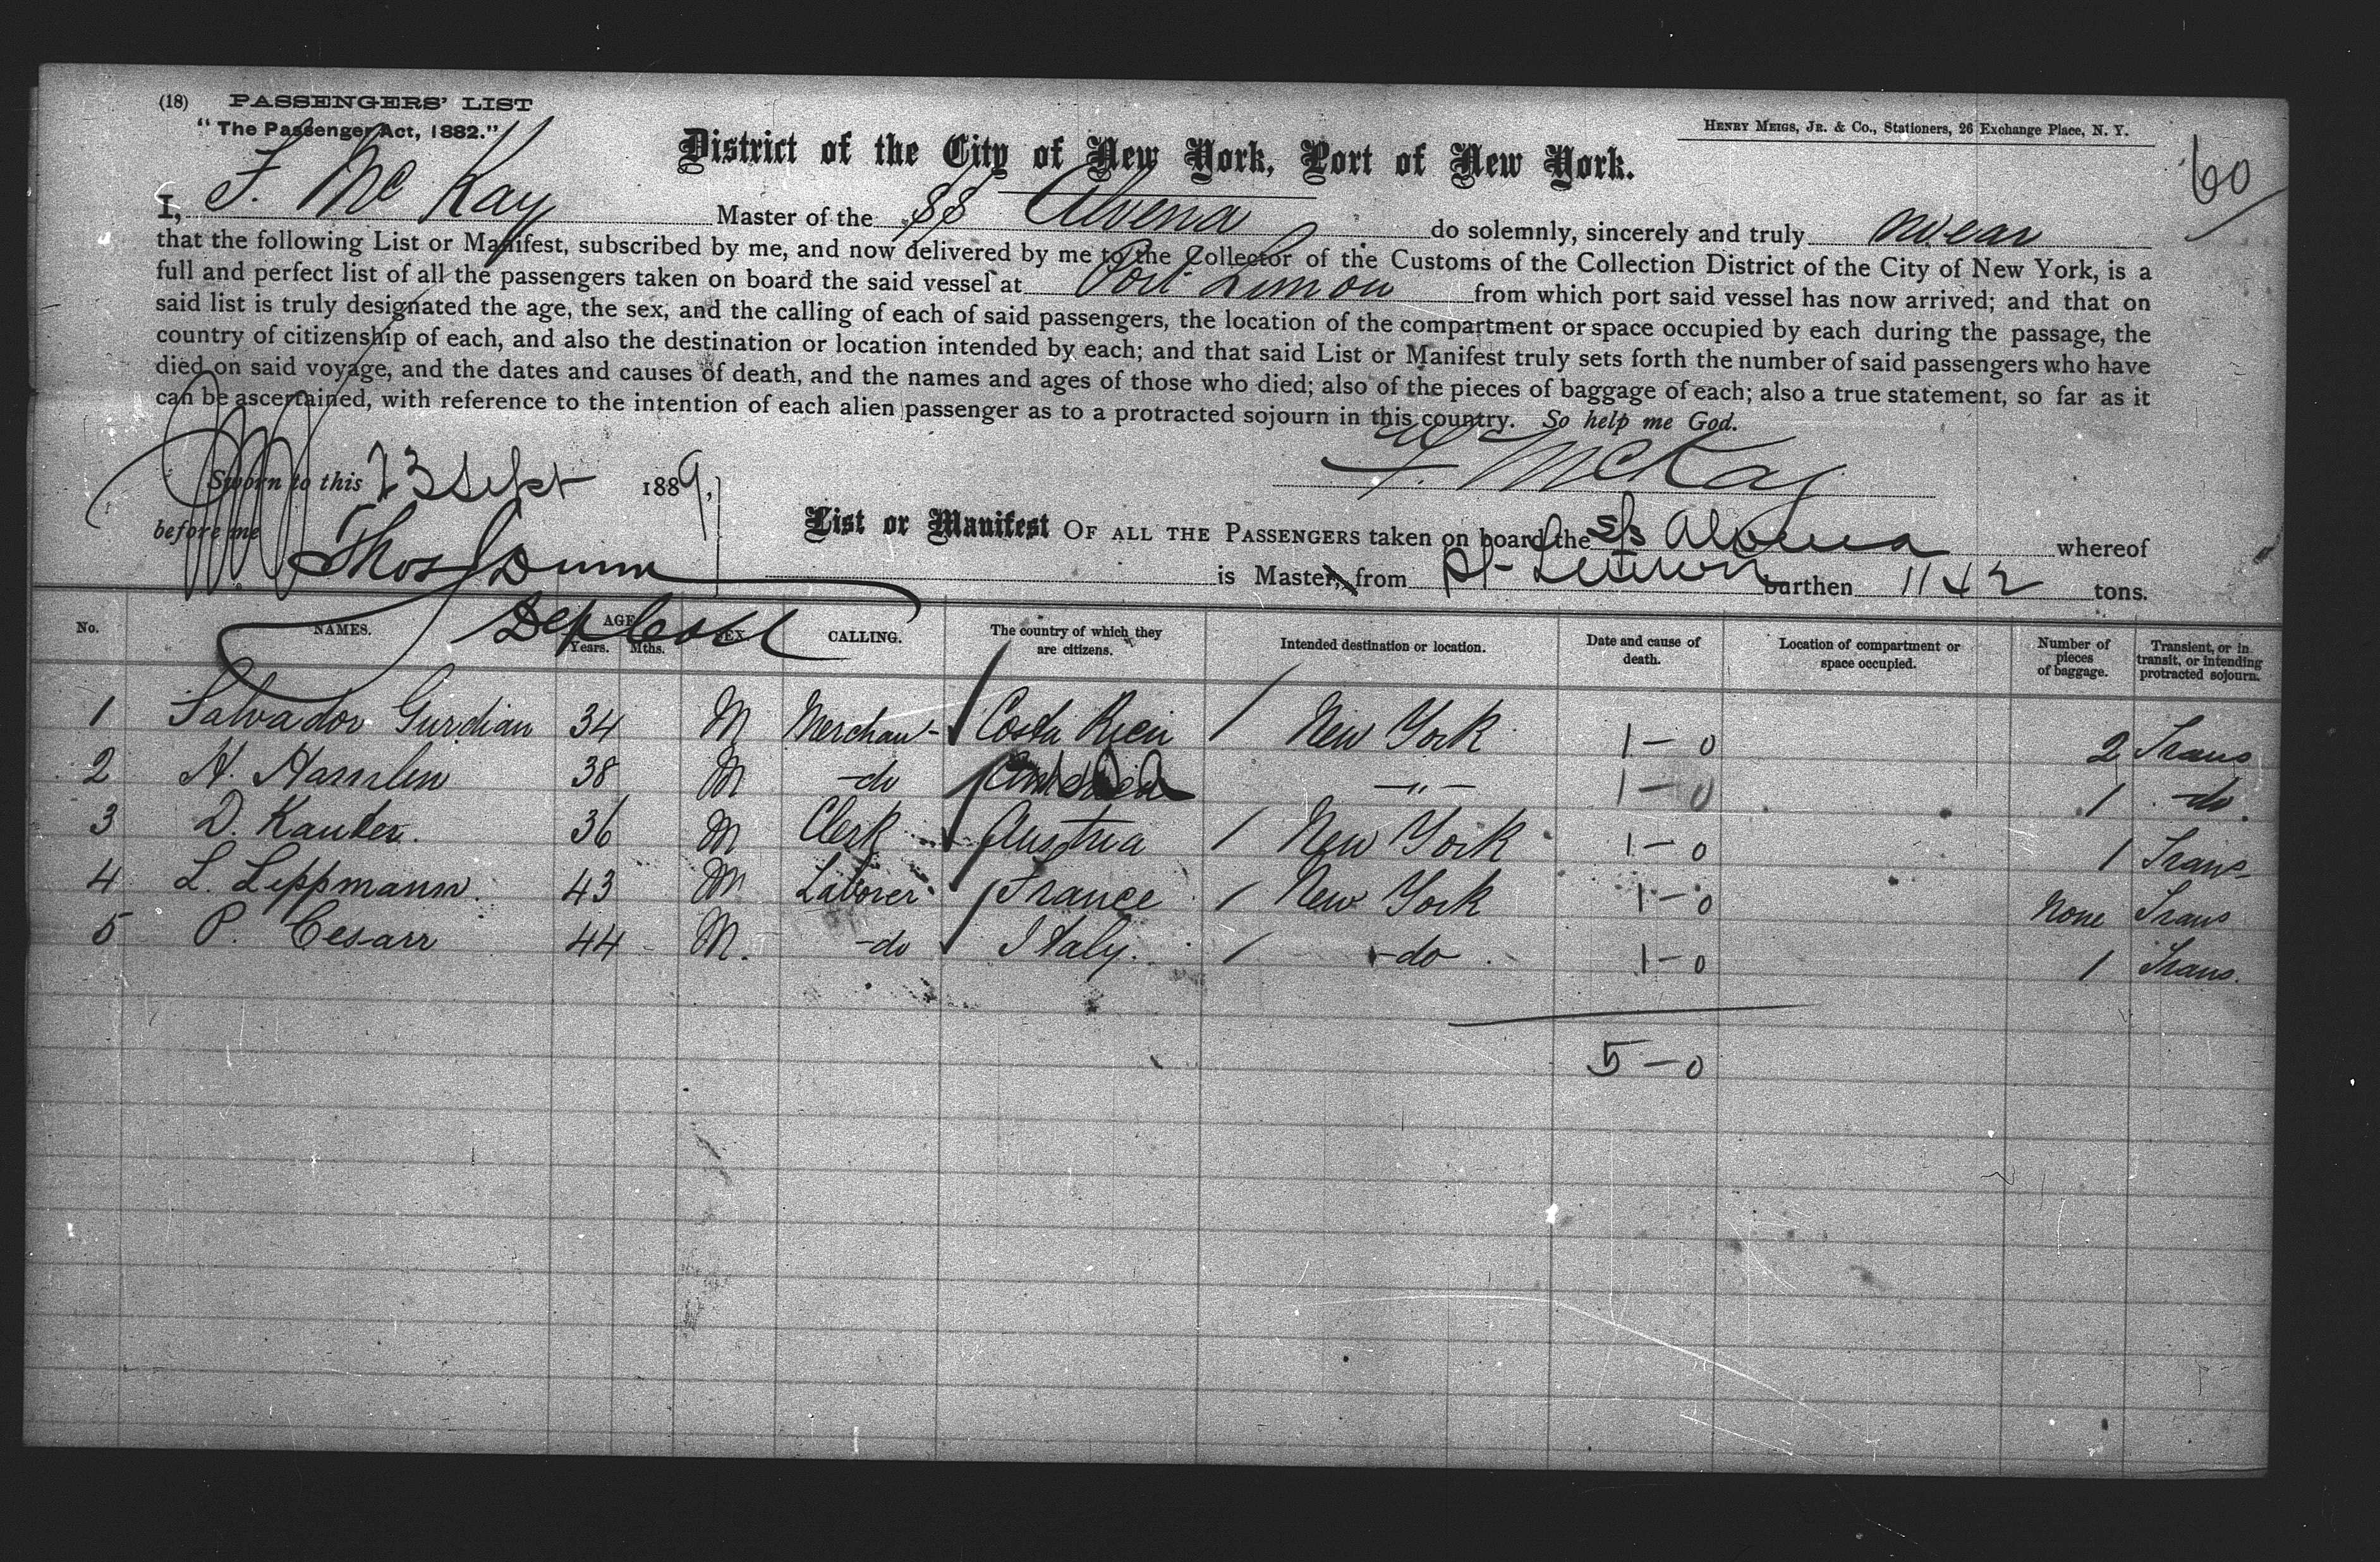 (18) PASSENGERS' LIST
"The Passenger Act, 1882."
HENRY MEIGS, JR. & CO., Stationers, 26 Exchange Place, N. Y.
60
District of the City of New York, Port of New York.
I, F. McKay Master of the SS Alvena do solemnly, sincerely and truly swear
that the following List or Manifest, subscribed by me, and now delivered by me to the Collector of the Customs of the Collection District of the City of New York, is a
full and perfect list of all the passengers taken on board the said vessel at Port Limon from which port said vessel has now arrived; and that on
said list is truly designated the age, the sex, and the calling of each of said passengers, the location of the compartment or space occupied by each during the passage, the
country of citizenship of each, and also the destination or location intended by each; and that said List or Manifest truly sets forth the number of said passengers who have
died on said voyage, and the dates and causes of death, and the names and ages of those who died; also of the pieces of baggage of each; also a true statement, so far as it
can be ascertained, with reference to the intention of each alien passenger as to a protracted sojourn in this country. So help me God.
F. McKay
Sworn to this 23 Sept 1889,
before me Thos Dunn
Dep Coll
List or Manifest OF ALL THE PASSENGERS taken on board the S/S Alvena whereof
is Master, from Pt Limon burthen 1142 tons.
No. NAMES. AGE Years. Mths. SEX CALLING. The country of which they are citizens. Intended destination or location. Date and cause of death. Location of compartment or space occupied. Number of pieces of baggage. Transient, or in transit, or intending protracted sojourn.
1 Salvador Gurdian 34 M Merchant Costa Rica / New York 1-0 2 Trans
2 H. Hamlin 38 M -do -"- 1-0 1 -do.
3 D. Kauder. 36 M Clerk Austria / New York 1-0 1 Trans
4 L. Leppmann. 43 M Laborer France / New York 1-0 None Trans
5 P. Cesarr 44 M. -do Italy. / -do 1-0 1 Trans.
5-0